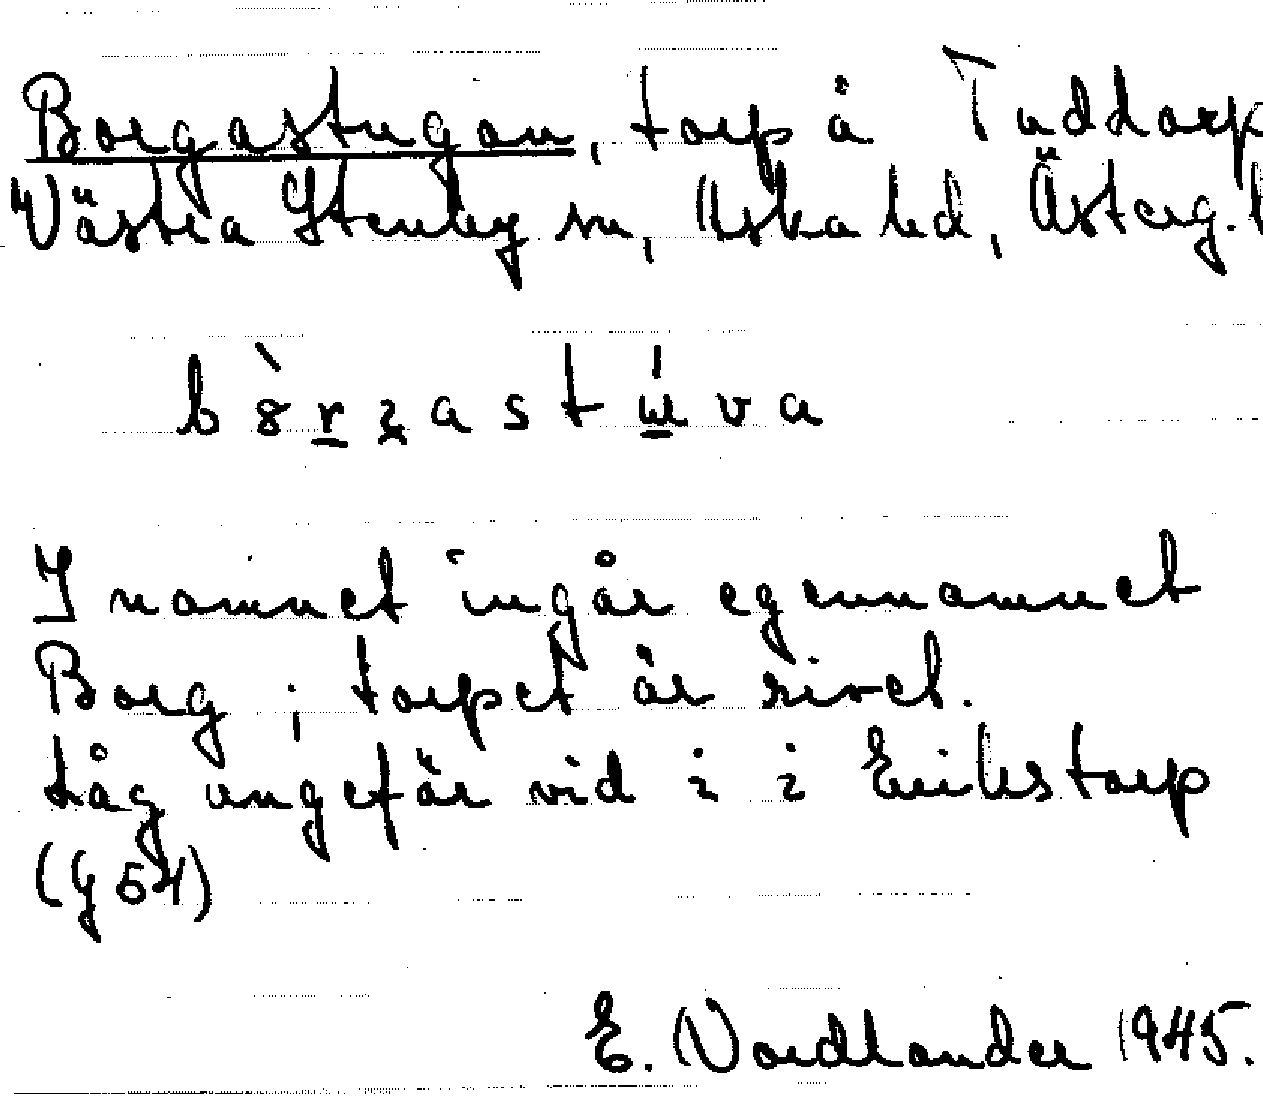 Borgastugan, torp å Tuddorp
Västra Stenby sn, Aska hd, Österg. l
I namnet ingår egennamnet
Borg; torpet är rivet.
Låg ungefär vid i i Erikstorp
(g 54)
E. Nordlander 1945.